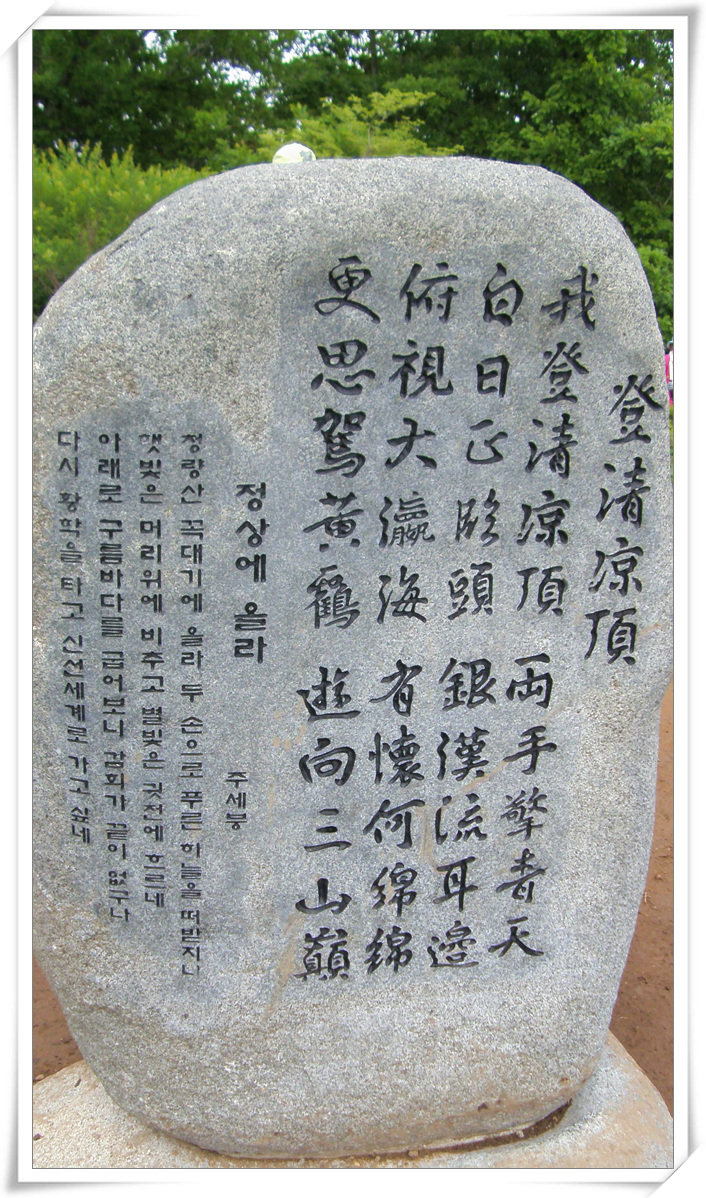 登清涼頂
我登清涼頂 両手擎青天
白日正臨頭 銀漢流耳邊
俯視大瀛海 有懷何綿綿
更思駕黃鶴 遊向三山巓
정상에 올라
주세붕
청량산 꼭대기에 올라 두 손으로 푸른 하늘을 떠받치니
햇빛은 머리위에 비추고 별빛은 귓전에 흐르네
아래로 구름바다를 굽어보니 감회가 끝이 없구나
다시 황학을 타고 신선세계로 가고 싶네